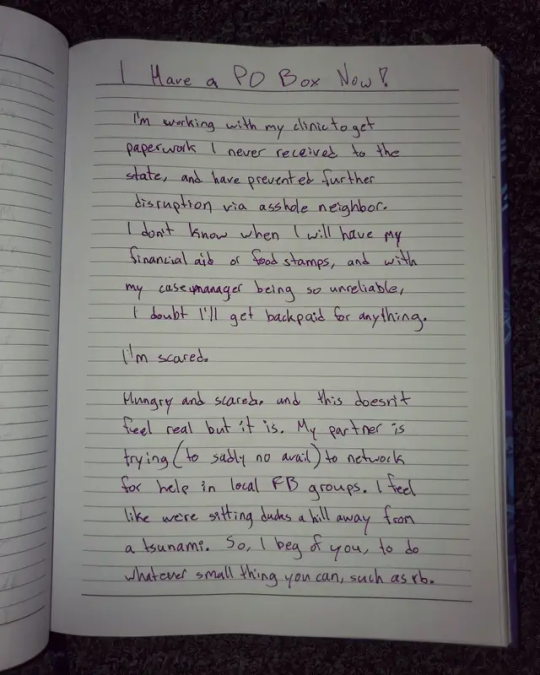 I Have a PO Box Now!
I'm working with my clinic to get
paperwork I never received to the
state, and have prevented further
disruption via asshole neighbor.
I don't know when I will have my
financial aid or food stamps, and with
my casemanager being so unreliable,
I doubt I'll get backpaid for anything.
I'm scared.
Hungry and scared, and this doesn't
feel real but it is. My partner is
trying (to sadly no avail) to network
for help in local FB groups. I feel
like we're sitting ducks a hill away from
a tsunami. So, I beg of you, to do
whatever small thing you can, such as rb.